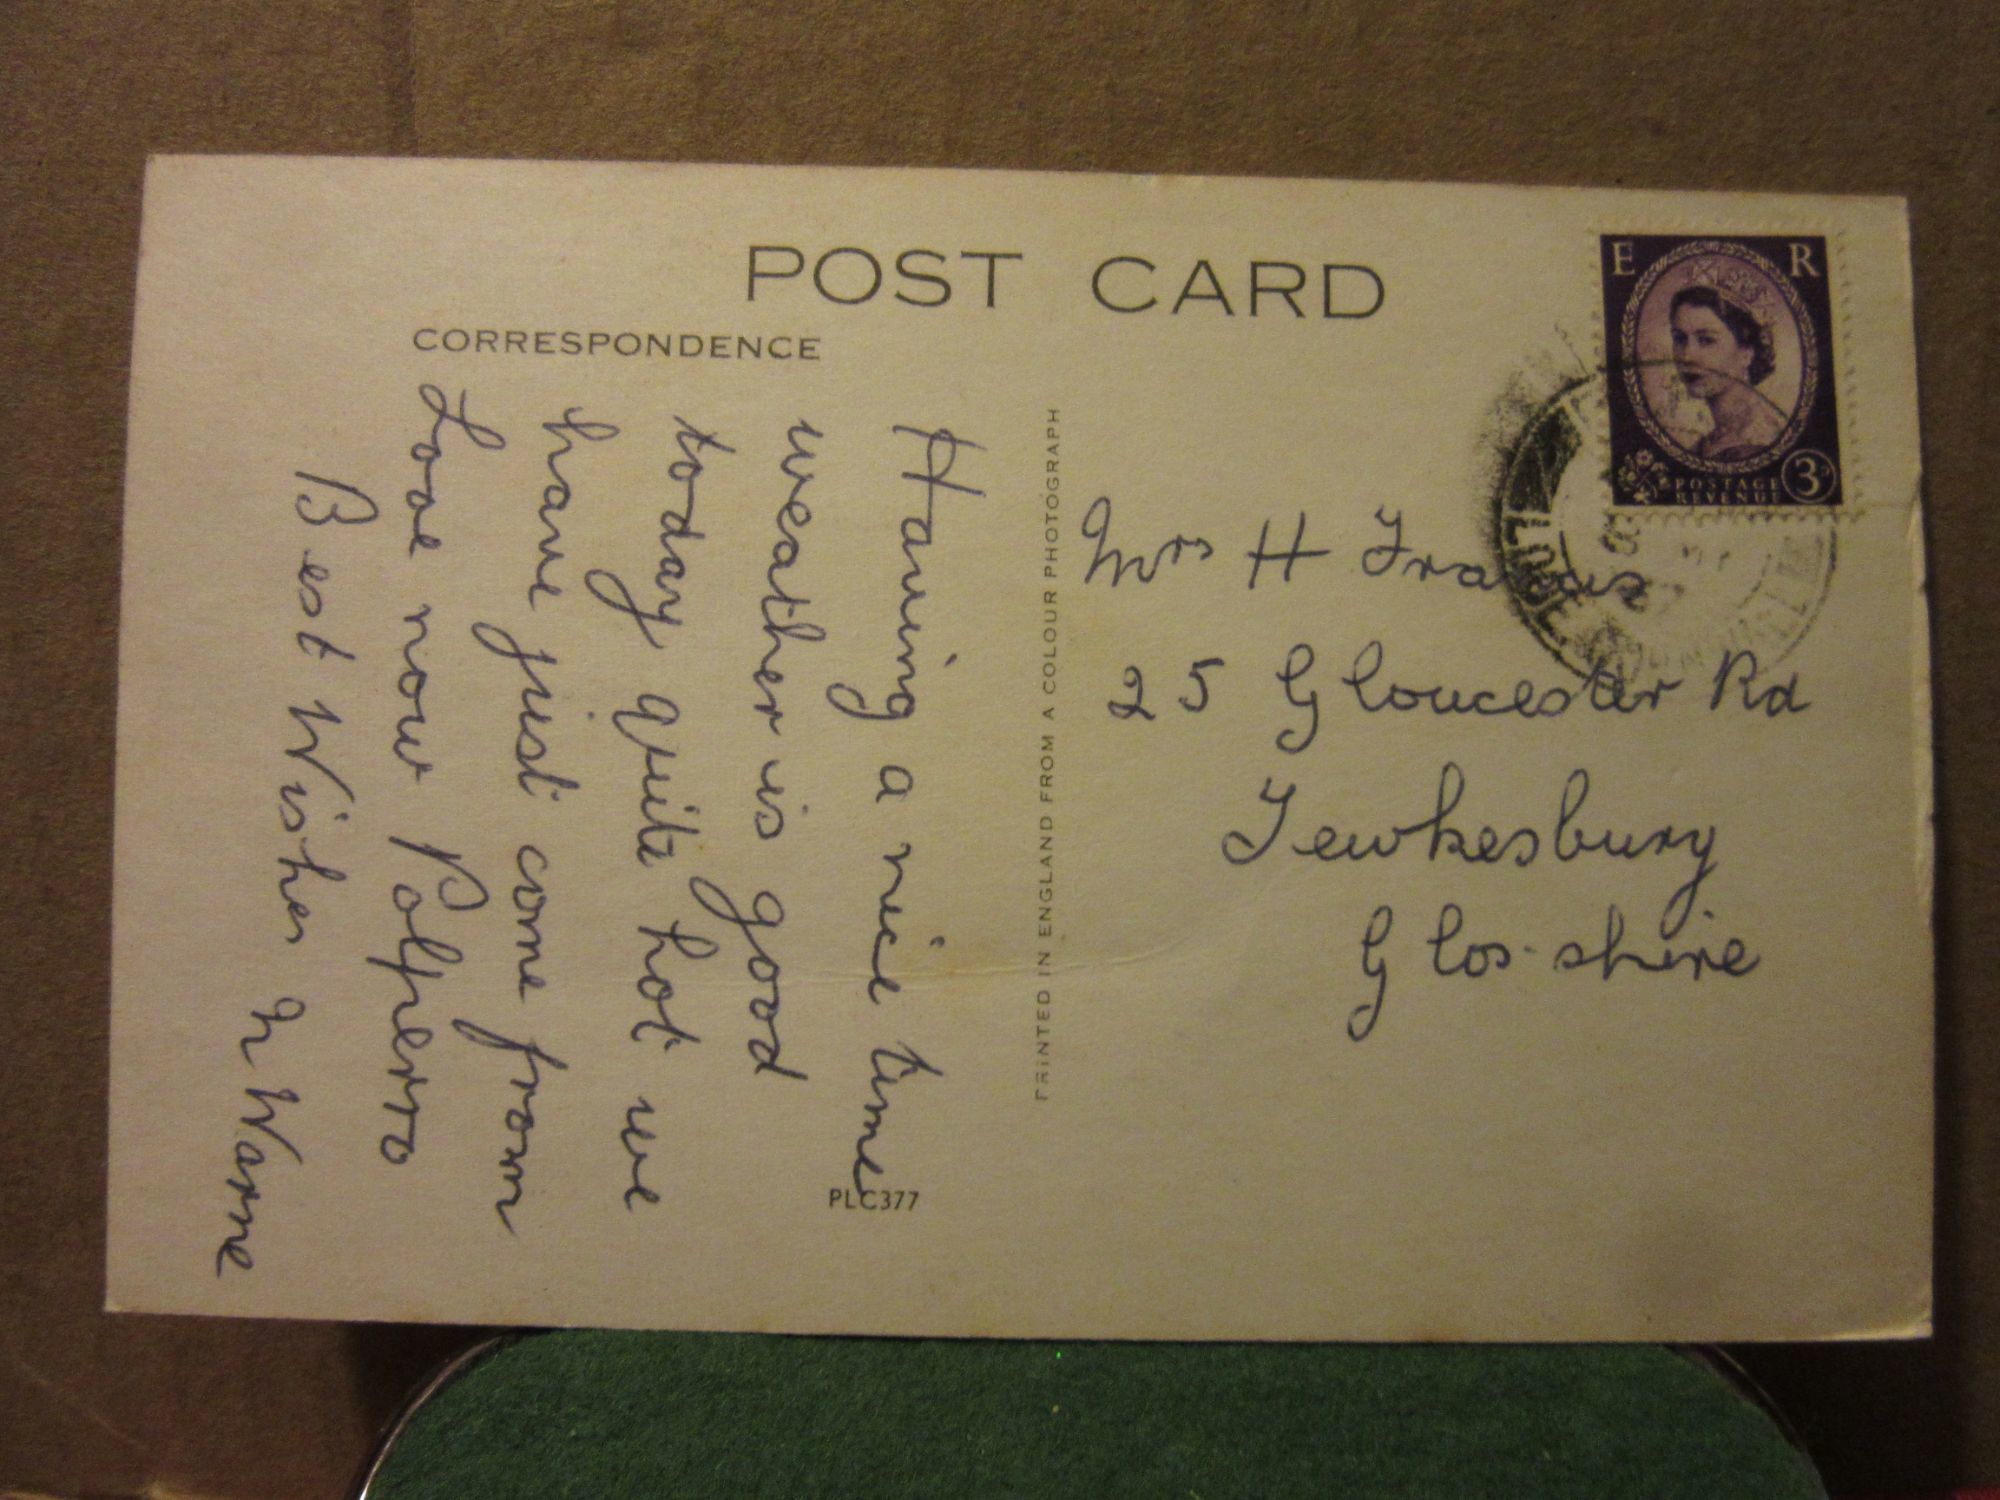 POST CARD
CORRESPONDENCE
Having a nice time
weather is good
today quite hot we
have just come from
Looe now Polperro
Best Wishes
Warne
PRINTED IN ENGLAND FROM A COLOUR PHOTOGRAPH
PLC377
E R
POSTAGE
REVENUE
3D
Mrs H Francis
25 Gloucester Rd
Tewkesbury
Glos-shire